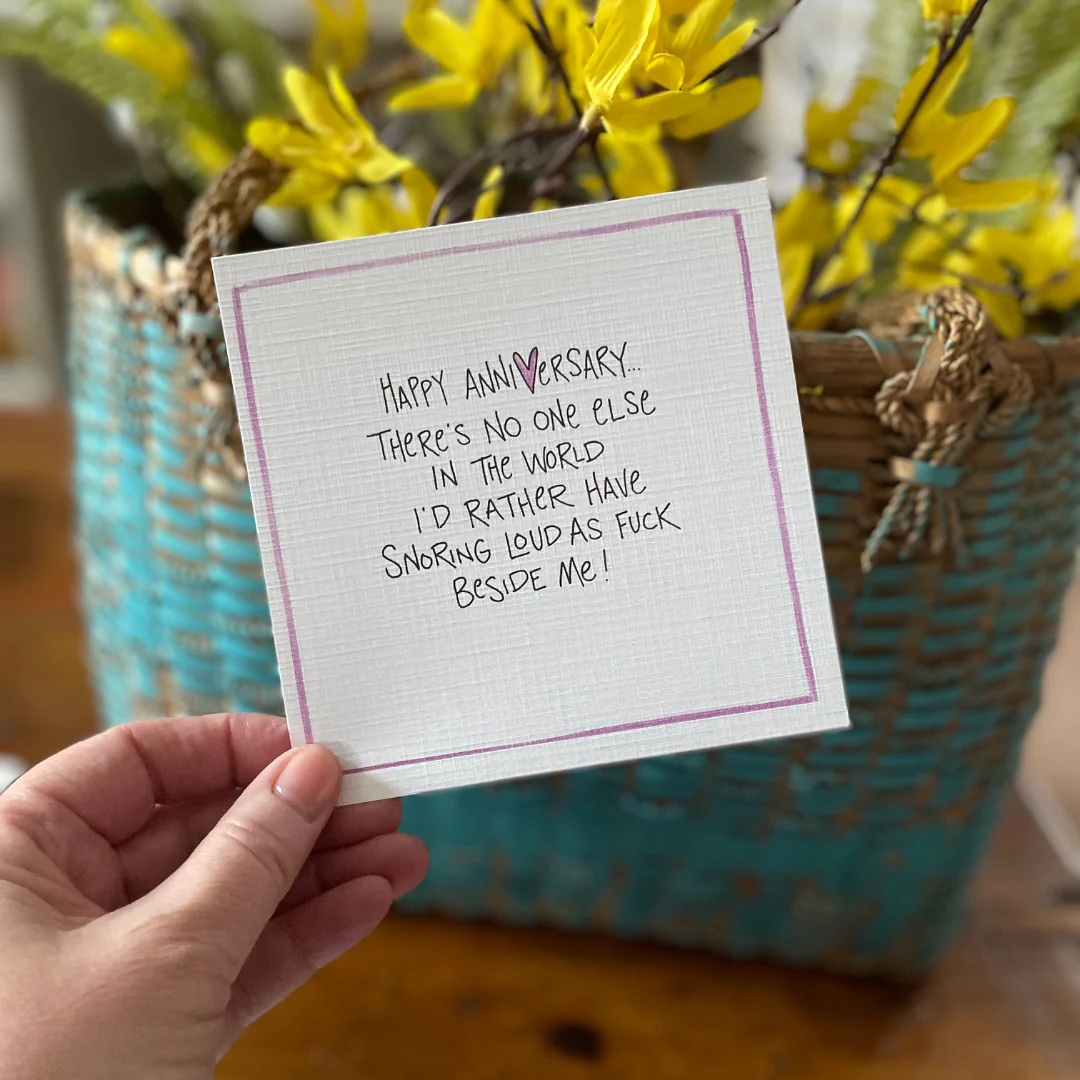 HAPPY ANNIVeRSARY...
THeRe'S NO ONe eLSe
IN THe WORLD
I'D RATHeR HAVe
SNORING LOUD AS FUCK
BeSIDe Me!